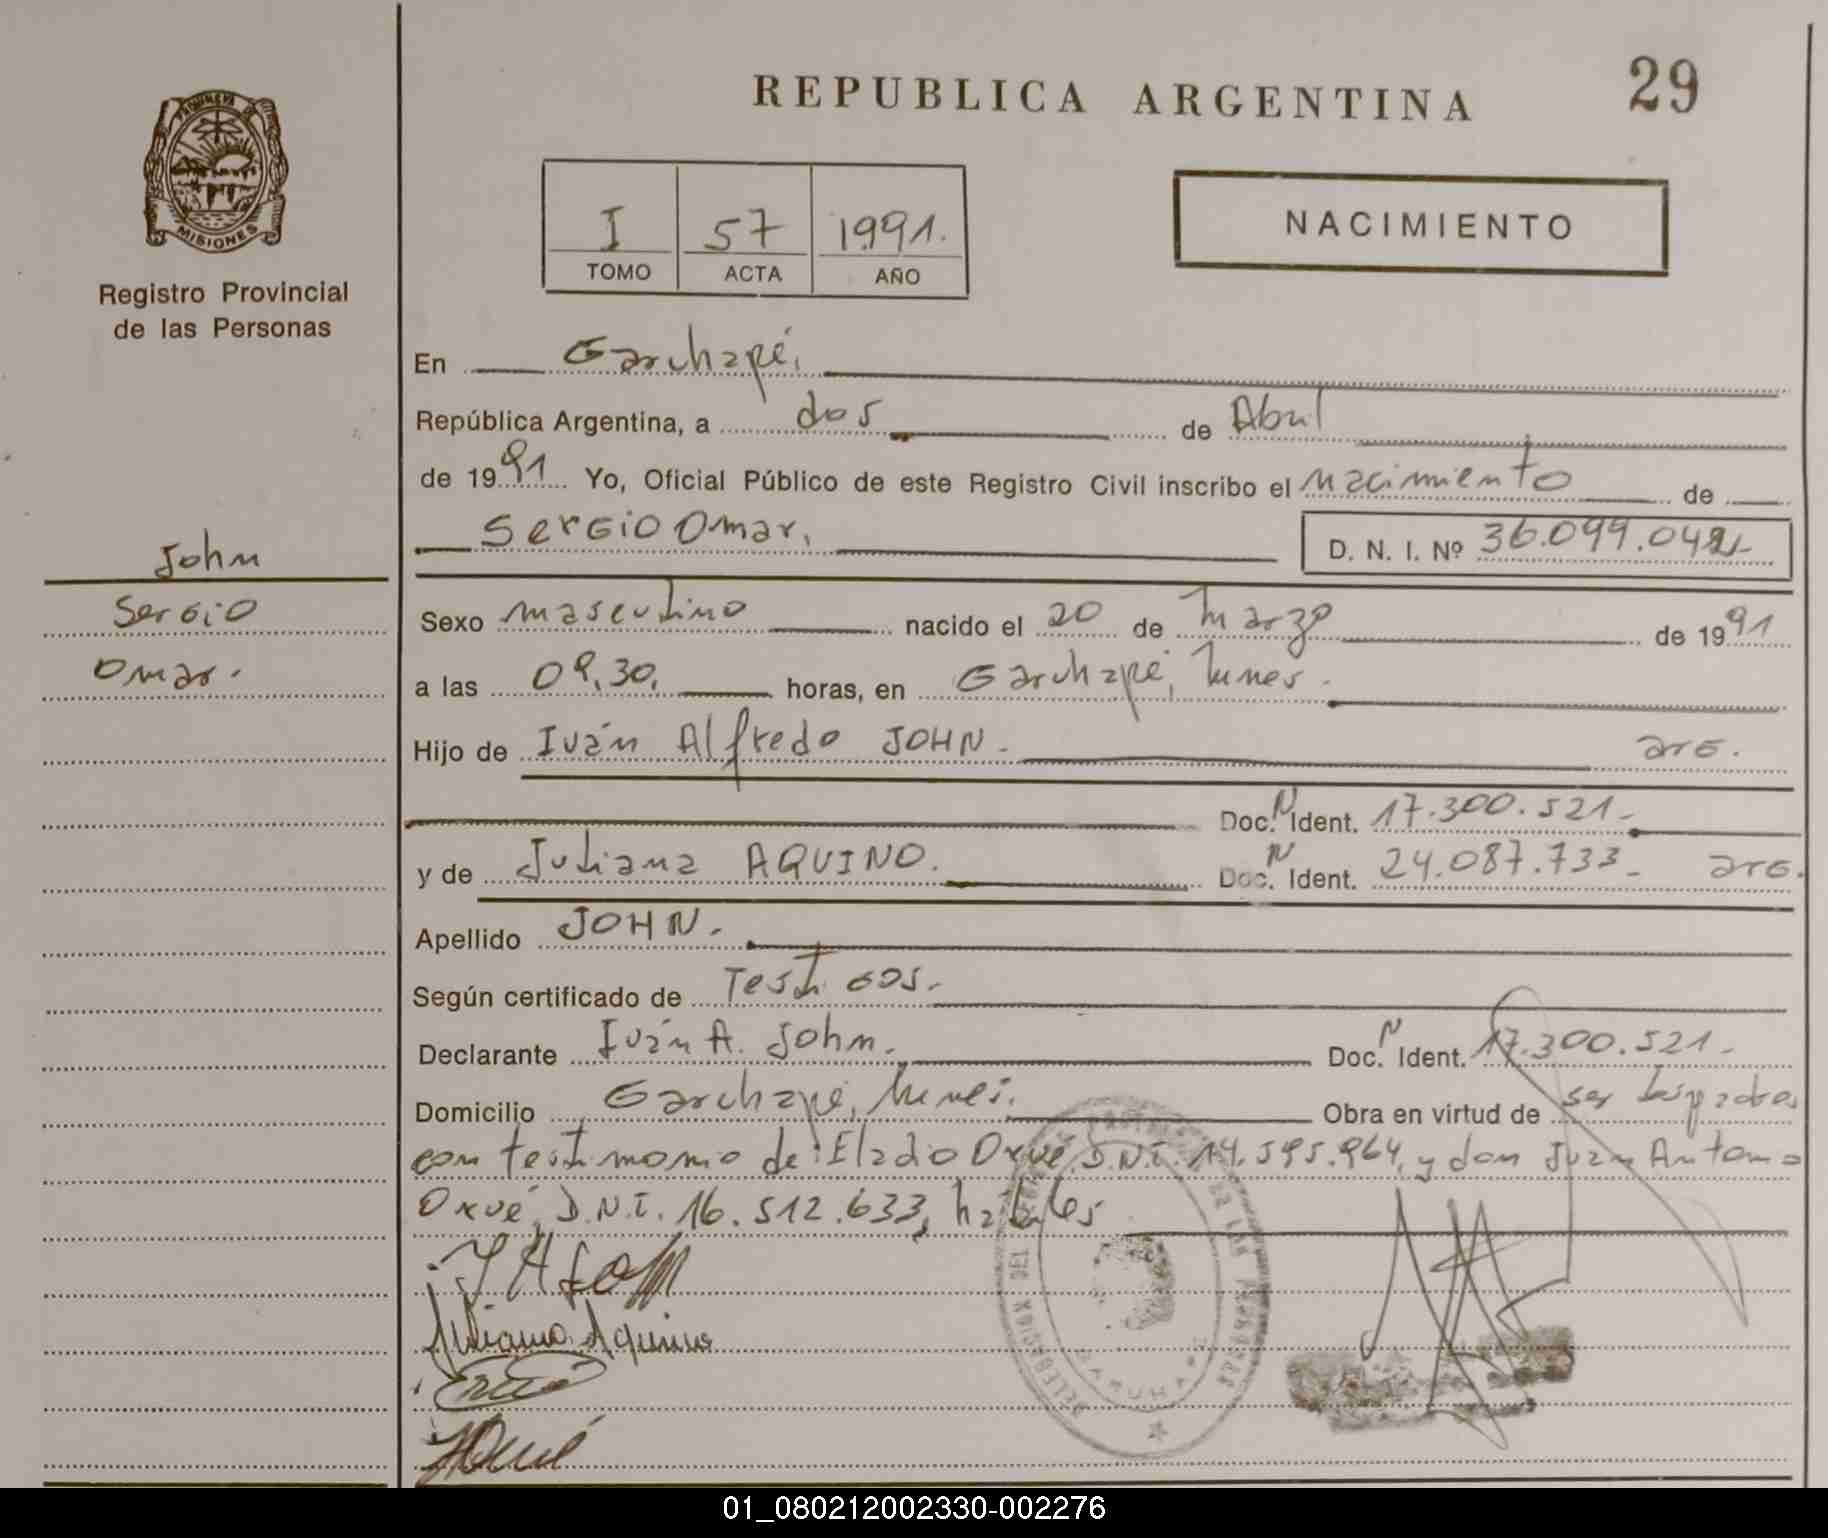 REPUBLICA ARGENTINA
29
PROVINCIA DE
MISIONES
Registro Provincial
de las Personas
I 57 1991.
TOMO ACTA AÑO
NACIMIENTO
En Garuhapé,
República Argentina, a dos de Abril
de 1991 Yo, Oficial Público de este Registro Civil inscribo el nacimiento de
Sergio Omar,
D. N. I. Nº 36.099.042
John
Sergio
Omar.
Sexo masculino nacido el 20 de marzo de 1991
a las 09,30, horas, en Garuhapé, Mnes.
Hijo de Iván Alfredo JOHN. arg.
Doc. N Ident. 17.300.521.
y de Juliana AQUINO. Doc. N Ident. 24.087.733 arg.
Apellido JOHN.
Según certificado de Testigos.
Declarante Iván A. John. Doc. N Ident. 17.300.521.
Domicilio Garuhapé, Mnes. Obra en virtud de ser los padres
con testimonio de: Eladio Oxué, D.N.I. 14.595.964, y don Juan Antonio
Oxué, D.N.I. 16.512.633, hábiles
Juliana Aquino
DELEGACION DEL REGISTRO PROVINCIAL DE LAS PERSONAS
GARUHAPE
01_080212002330-002276